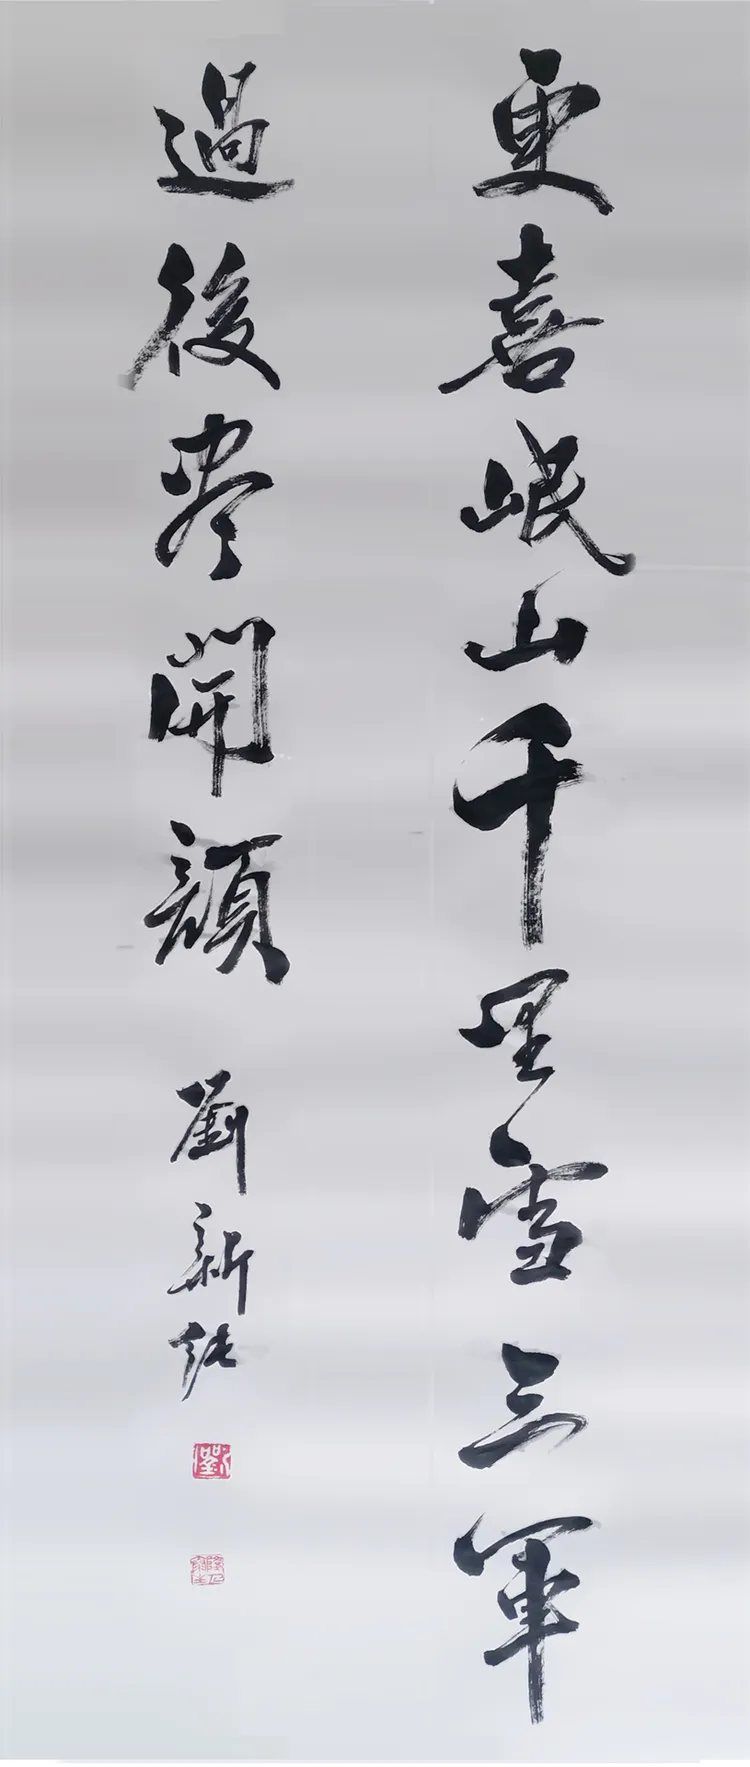 更喜岷山千里雪三軍
過後尽開顔
劉新德